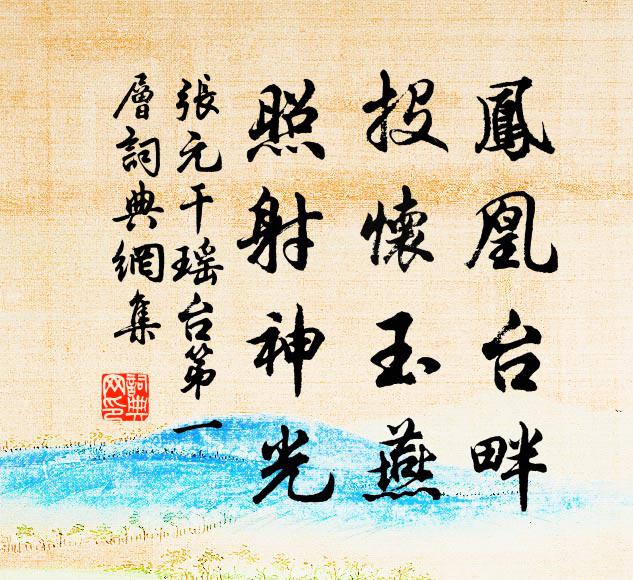 鳳凰台畔
投懷玉燕
照射神光
張元干瑤台第一
層詞典網集
詞典
网印